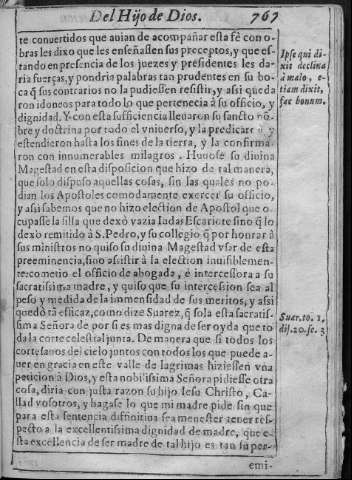 Del Hijo de Dios. 767
te conuertidos que auian de acompañar esta fé con o-
bras les dixo que les enseñassen sus preceptos, y que es-
tando en presencia de los juezes y presidentes les da-
ria fuerças, y pondria palabras tan prudentes en su bo-
ca q̃ sus contrarios no la pudiessen resistir, y asi queda
ron idoneos para todo lo que pertenecia à su officio, y
dignidad. Y con esta sufficiencia lleuaron su sancto nõ-
bre y doctrina por todo el vniuerso, y la predicarõ y
estendieron hasta los fines de la tierra, y la confirma-
ron con innumerables milagros. Huuose su diuina
Magestad en esta disposicion que hizo de tal manera,
que solo dispuso aquellas cosas, sin las quales no po-
dian los Apostoles comodamente exercer su officio,
y asi sabemos que no hizo election de Apostol que o-
cupasse la silla que dexò vazia Iudas Escariote sino q̃ lo
dexò remitido à S. Pedro, y su collegio q̃ por honrar à
sus ministros no quiso su diuina Magestad vsar de esta
preeminencia, sino assistir à la election inuisiblemen-
te: cometio el officio de abogada, è intercessora a su
sacratissima madre, y quiso que su intercession sea al
peso y medida de la immensidad de sus meritos, y asi
quedò tã efficaz, como dize Suarez, q̃ sola esta sacratis-
sima Señora de por si es mas digna de ser oyda que to
da la corte celestial junta. De manera que si todos los
cortesanos del cielo juntos con todos los que puede a-
uer en gracia en este valle de lagrimas hiziessen vna
peticion à Dios, y esta nobilissima Señora pidiesse otra
cosa, diria con justa razon su hijo Iesu Christo, Ca-
llad vosotros, y hagase lo que mi madre pide sin que
para esta sentencia diffinitiua sea menester tener res-
pecto a la excellentissima dignidad de madre, que e-
sta excellencia de ser madre de tal hijo es tan suppe-
emi-
Ipse qui di-
xit declina
à malo, e-
tiam dixit,
fac bonum.
Suar. to. 1.
dis. 20. se. 3